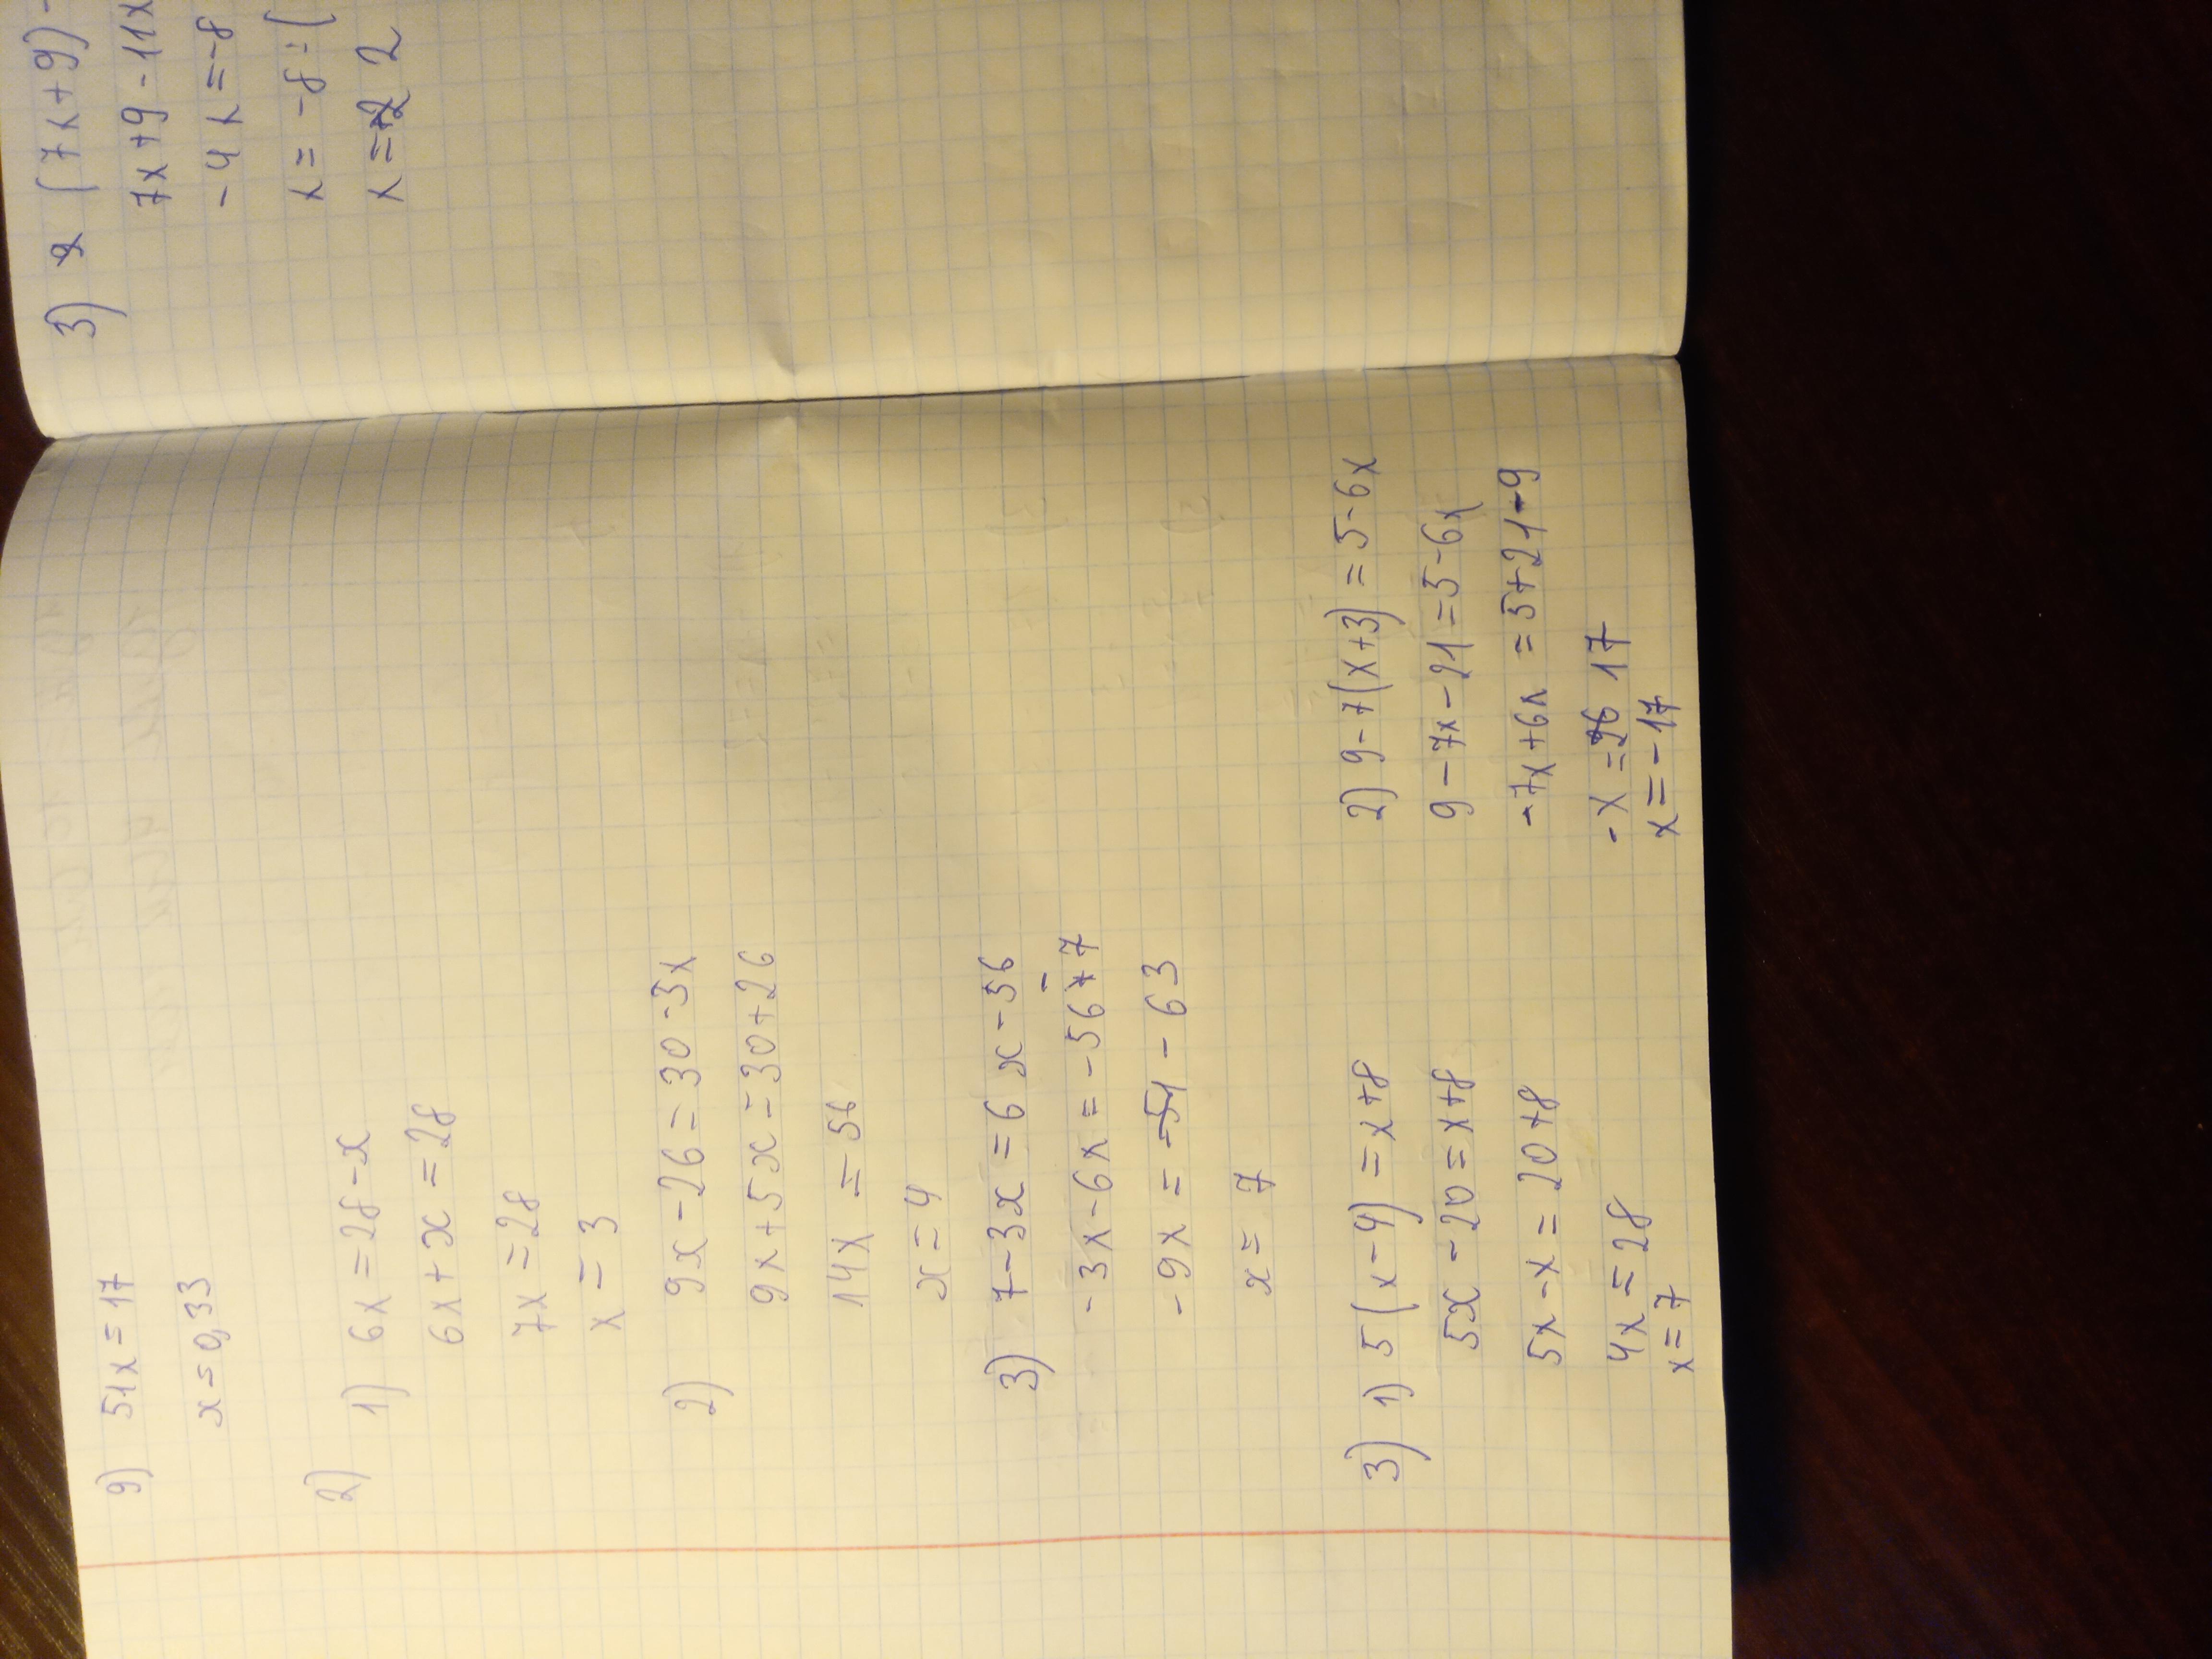 9) 51x=17
x=0,33
2) 1) 6x=28-x
6x+x=28
7x=28
x=3
2) 9x-26=30-5x
9x+5x=30+26
14x=56
x=4
3) 7-3x=6x-56
-3x-6x=-56-7
-9x=-63
x=7
3) 1) 5(x-4)=x+8
5x-20=x+8
5x-x=20+8
4x=28
x=7
2) 9-7(x+3)=5-6x
9-7x-21=5-6x
-7x+6x=5+21-9
-x=17
x=-17
3) (7x+9)-
7x+9-11x
-4x=-8
x=-8:(
x=2